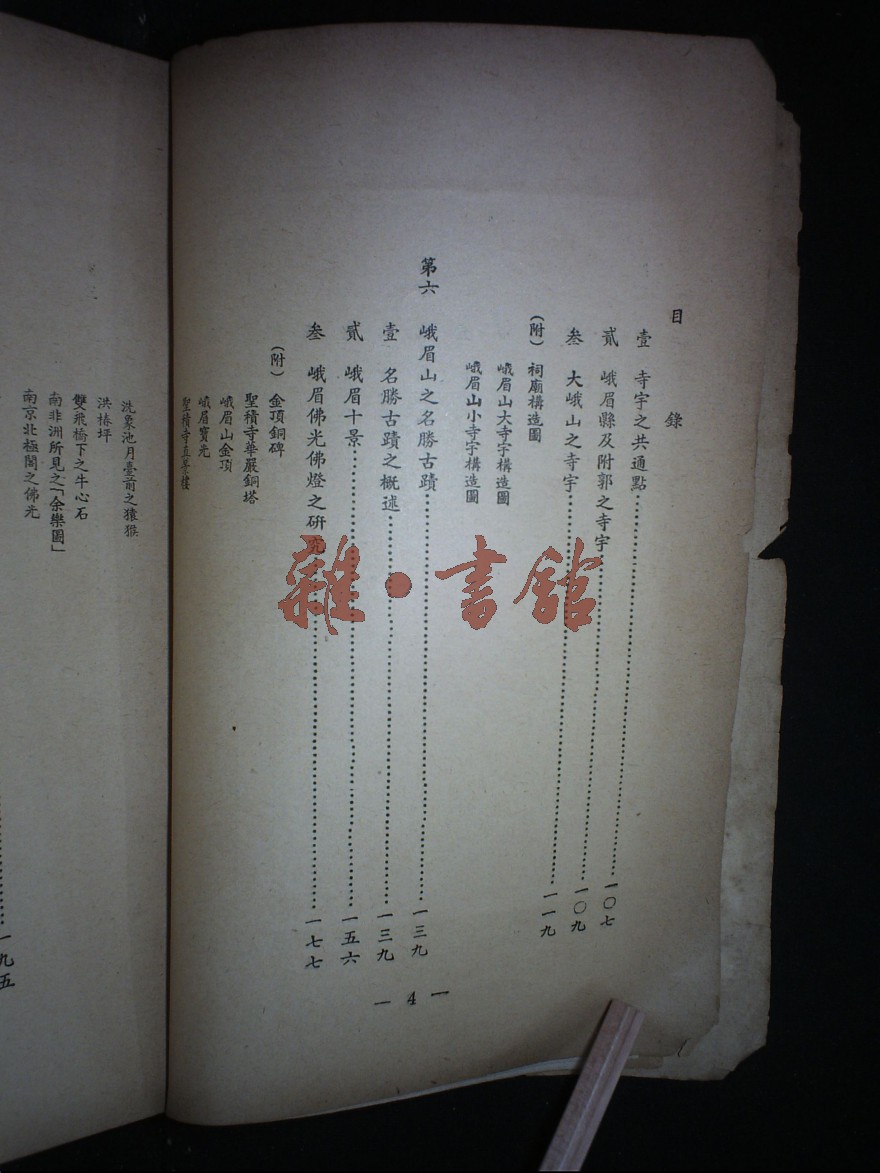 目錄
壹 寺宇之共通點⋯⋯一〇七
貳 峨眉縣及附郭之寺宇⋯⋯一〇九
叁 大峨山之寺宇⋯⋯一一九
(附) 祠廟構造圖
峨眉山大寺宇構造圖
峨眉山小寺宇構造圖
第六 峨眉山之名勝古蹟⋯⋯一三九
壹 名勝古蹟之概述⋯⋯一三九
貳 峨眉十景⋯⋯一五六
叁 峨眉佛光佛燈之研究⋯⋯一七七
(附) 金頂銅碑
聖積寺華嚴銅塔
峨眉山金頂
峨眉寶光
聖積寺真景樓
— 4 —
洗象池月臺前之猿猴
洪椿坪
雙飛橋下之牛心石
南非洲所見之「余樂圖」
南京北極閣之佛光
⋯⋯一九五
雜·書館